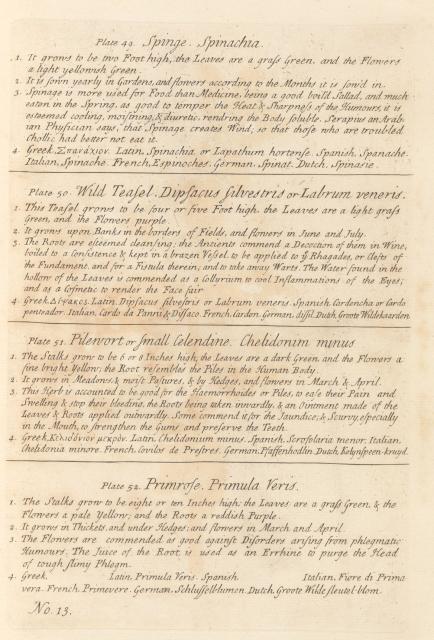 Plate 49. Spinge. Spinachia.
1. It grows to be two Foot high, the Leaves are a graſs Green, and the Flowers
a light yellowish Green.
2. It is ſown yearly in Gardens, and flowers according to the Months it is ſow'd in.
3. Spinage is more uſed for Food than Medicine, being a good boil'd Sallad, and much
eaten in the Spring, as good to temper the Heat & Sharpneſs of the Humours, it is
esteemed cooling, moiſtning, & diuretic, rendring the Body ſoluble. Serapius an Arab-
ian Phyſician says, that Spinage creates Wind; so that those who are troubled
Cholic, had better not eat it.
4. Greek. Latin, Spinachia, or Lapathum hortense. Spanish, Spanache.
Italian, Spinache. French, Espinoches. German, Spinat. Dutch, Spinasie.
Plate 50. Wild Teaſel. Dipſacus ſilvestris or Labrum veneris.
1. This Teaſel grows to be four or five Foot high, the Leaves are a light graſs
Green, and the Flowers purple
2. It grows upon Banks in the borders of Fields, and flowers in June and July.
3. The Roots are eſteemed cleanſing; the Ancients commend a Decoction of them in Wine,
boiled to a Conſistence & kept in a brazen Veſsel, to be applied to ẏ Rhagades, or Clefts of
the Fundament, and for a Fistula therein; and to take away Warts. The Water found in the
hollow of the Leaves is commended as a Collyrium to cool Inflammations of the Eyes;
and as a Coſmetic to render the Face fair
4. Greek, Διψακος. Latin, Dipſacus ſilvestris or Labrum veneris. Spanish, Cardencha or Cardo
penteador. Italian, Cardo da Panni & Dyſſaco. French, Cardon. German, diſtil. Dutch, Groote Wildekaarden
Plate 51. Pilewort or ſmall Celendine. Chelidonium minus
1. The Stalks grow to be 6 or 8 Inches high; the Leaves are a dark Green and the Flowers a
fine bright Yellow; the Root reſembles the Piles in the Human Body.
2. It grows in Meadows, & moiſt Paſtures, & by Hedges, and flowers in March & April.
3. This Herb is accounted to be good for the Haemorrhoides or Piles, to eaſe their Pain and
Swelling & stop their bleeding, the Roots being taken inwardly, & an Ointment made of the
Leaves & Roots applied outwardly. Some commend it for the Jaundice; & Scurvy, eſpecially
in the Mouth, to strengthen the Gums and preserve the Teeth.
4. Greek, Χελιδόνιον μικρόν. Latin, Chelidonium minus. Spanish, Scrofolaria menor. Italian,
Chelidonia minore. French, Coulus de Prestres. German, Pfaffenhodlin. Dutch,
Plate 52. Primroſe. Primula Veris.
1. The Stalks grow to be eight or ten Inches high; the Leaves are a graſs Green, & the
Flowers a pale Yellow; and the Roots a reddish Purple.
2. It grows in Thickets, and under Hedges; and flowers in March and April.
3. The Flowers are commended as good againſt Diſorders ariſing from phlegmatic
Humours. The Juice of the Root is uſed as an Errhine to purge the Head
of tough ſlimy Phlegm.
4. Greek. Latin, Primula Veris. Spanish. Italian, Fiore di Prima
vera. French, Primevere. German, Schluſſelblumen. Dutch, Groote Wilde ſleutel-blom.
No. 13.